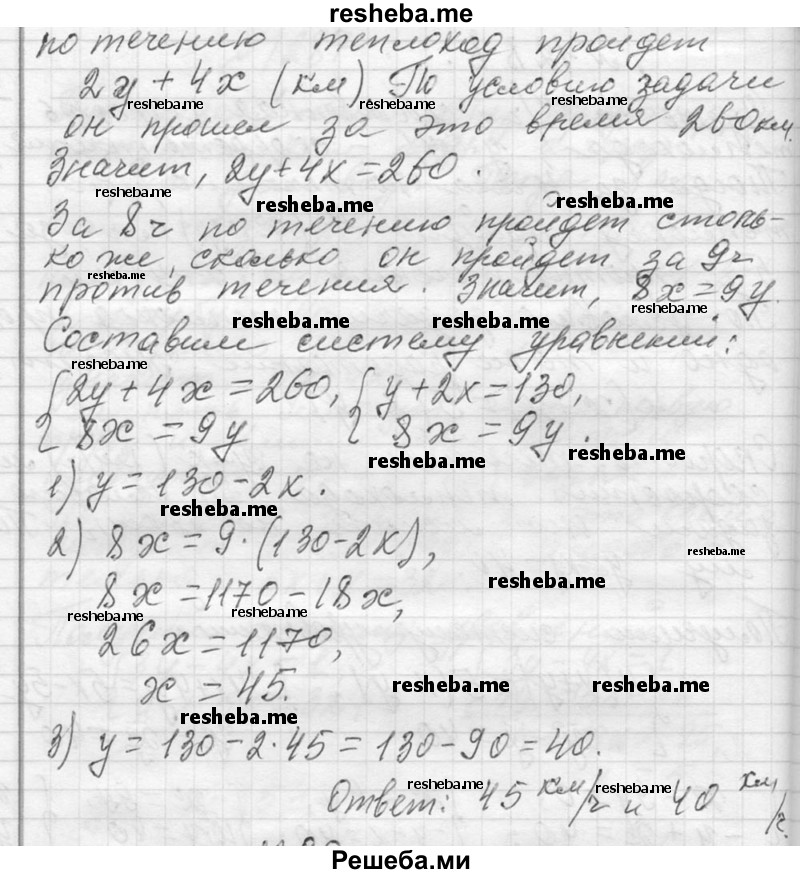 resheba.me
по течению теплоход пройдет
2y + 4x (км) По условию задачи
resheba.me resheba.me resheba.me
он прошел за это время 260 км.
Значит, 2y+4x=260.
resheba.me resheba.me resheba.me
За 8 ч по течению пройдет столь-
ко же, сколько он пройдет за 9 ч
resheba.me
против течения. Значит, 8x=9y.
resheba.me resheba.me resheba.me
Составим систему уравнений:
resheba.me
{2y+4x=260, {y+2x=130,
8x=9y 8x=9y.
resheba.me resheba.me
1) y=130-2x.
resheba.me
2) 8x=9·(130-2x),
resheba.me
resheba.me
8x=1170-18x,
resheba.me resheba.me
26x=1170,
x=45.
resheba.me resheba.me
resheba.me
3) y=130-2·45=130-90=40.
resheba.me resheba.me
Ответ: 45 км/ч и 40 км/ч.
Решеба.ми